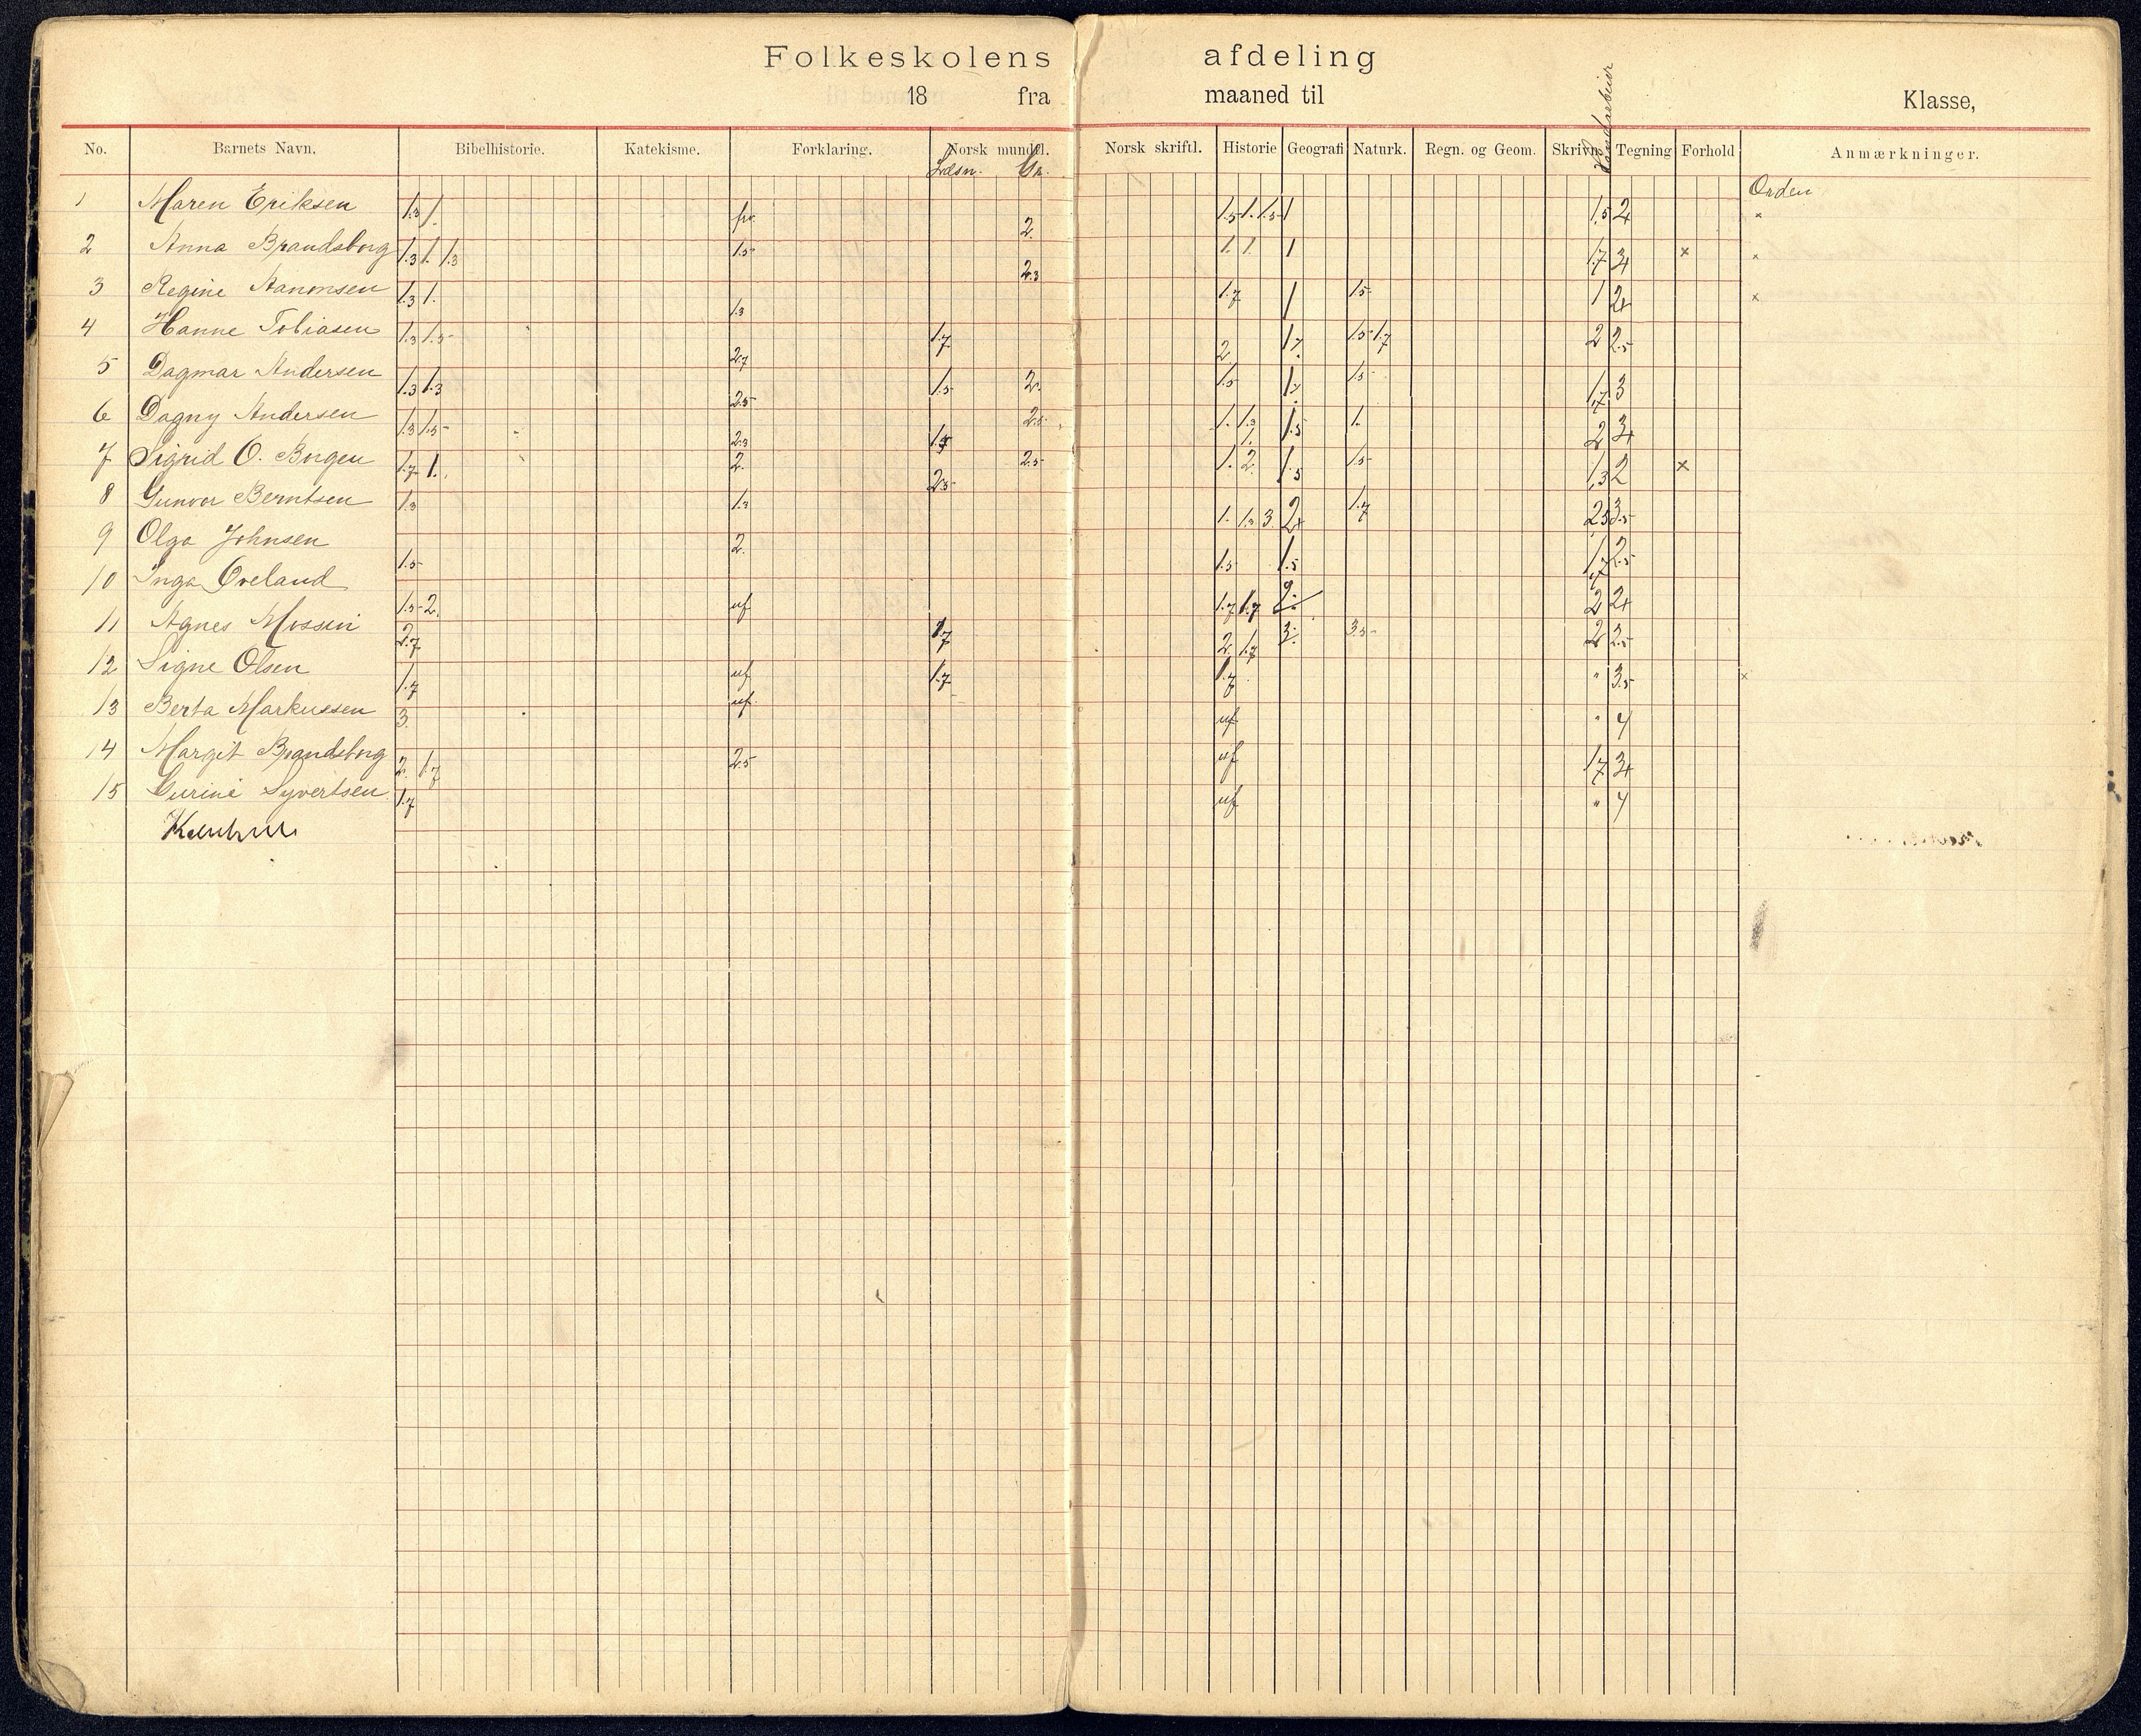 Folkeskolens afdeling
18 fra maaned til Klasse,
No. Barnets Navn. Bibelhistorie. Katekisme. Forklaring. Norsk mundtl. Norsk skriftl. Historie Geografi Naturk. Regn. og Geom. Skrivn. Haandarbeide Tegning Forhold Anmærkninger.
Læsn. Gr.
Orden
1 Maren Eriksen 1.3 1. 2. 1.5 1. 1.5 1 1.5 2+ "
2 Anna Brandsborg 1.3 1. 1.3 1.5 2.3 1. 1. 1 1.7 3+ × "
3 Regine Aanonsen 1.3 1. 1.3 1.7 1 1.5 1 2+ ×
4 Hanne Tobiasen 1.3 1.5 2.7 1.7 2 1.7 1.5 1.7 2 2.5
5 Dagmar Andersen 1.3 1.3 2.5 1.5 2. 1.5 1.7 1.5 1.7 3
6 Dagny Andersen 1.3 1.5 2.3 2.5 1. 1.3 1. 1.5 1. 2 3+
7 Sigrid O. Borgen 1.7 1. 2. 2.5 2.5 1. 2. 1.5 1.5 1.3 2 ×
8 Gunvor Berntsen 1.3 1.3 1. 1.3 3. 2+ 1.7 2.5 3.5
9 Olga Johnsen 1.5 2. 1.5 1.5 1.7 2.5
10 Inga Oveland 1.5 2. uf 1.7 1.7 2 2+
11 Agnes Mossin 2.7 1.7 2. 1.7 3. 3.5 2 2.5
12 Signe Olsen 1.7 uf 1.7 1.7 " 3.5 ×
13 Berta Markussen 3. uf uf " 4
14 Margit Brandsborg 2. 1.7 2.5 uf 1.7 3+
15 Gurine Syvertsen 1.7 uf " 4